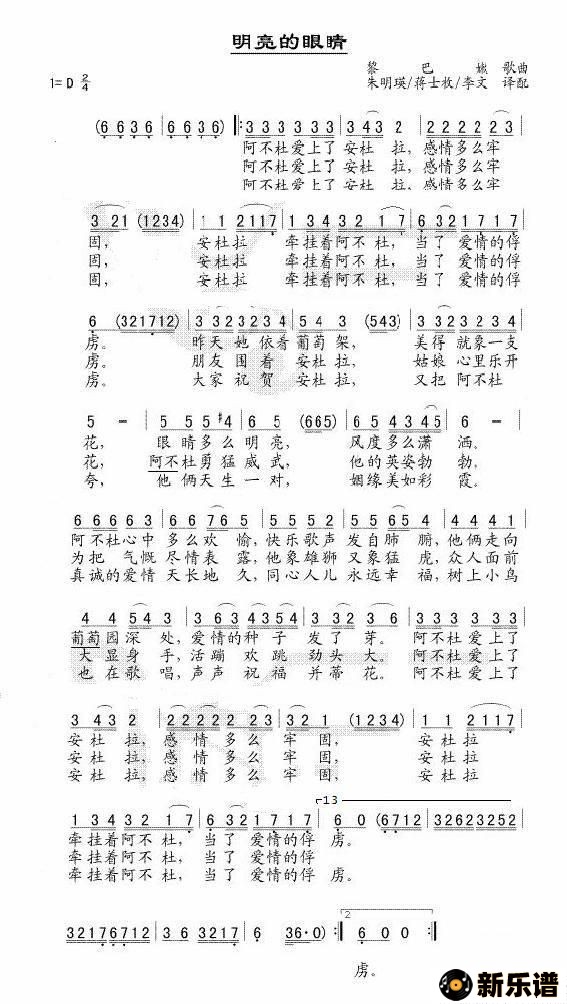 明亮的眼睛
1= D 2/4
黎巴嫩 歌曲
朱明瑛/蒋士枚/李文 译配
(6 6 3 6 6 6 3 6) | : 3 3 3 3 3 3 | 3 4 3 2 | 2 2 2 2 2 3 |
阿不杜爱上了 安杜 拉, 感情多么牢
阿不杜爱上了 安杜 拉, 感情多么牢
阿不杜爱上了 安杜 拉, 感情多么牢
3 21 (1234) | 1 1 2117 | 1 34 32 1 7 | 6 32 1717 |
固, 安杜拉 牵挂着阿不 杜, 当了 爱情的俘
固, 安杜拉 牵挂着阿不 杜, 当了 爱情的俘
固, 安杜拉 牵挂着阿不 杜, 当了 爱情的俘
6 (321712) | 3 323234 | 5 4 3 (543) | 3 3 2 3 4 |
虏。 昨天她依着葡萄架, 美得就象一支
虏。 朋友围着 安杜拉, 姑娘心里乐开
虏。 大家祝贺 安杜拉, 又把阿不杜
5 - | 5 5 5 #4 | 6 5 (665) | 6 5 4 3 4 5 | 6 - |
花, 眼睛多么明亮, 风度多么潇 洒。
花, 阿不杜勇猛威武, 他的英姿勃 勃,
夸, 他俩天生一对, 姻缘美如彩 霞。
6 6 6 6 6 | 6 6 76 5 | 5 5 5 5 | 5 5 65 4 | 4 4 4 5 |
阿不杜心中 多么欢 愉, 快乐歌声 发自肺 腑, 他俩走向
为把 气慨 尽情表 露, 他象雄狮 又象猛 虎, 众人面前
真诚的爱情 天长地 久, 同心人儿 永远幸 福, 树上小鸟
4 4 5 4 3 | 3 3 6 3 | 3 2 3 2 1 | 3 3 3 3 3 3 |
葡萄园深 处, 爱情的种 子 发了 芽。 阿不杜爱上了
大显身 手, 活蹦欢跳 劲头 大。 阿不杜爱上了
也在歌 唱, 声声祝福 并蒂 花。 阿不杜爱上了
3 43 2 | 2 2 2 2 2 2 3 | 3 2 1 (1234) | 1 1 2117 |
安杜 拉, 感情多么 牢固, 安杜拉
安杜 拉, 感情多么 牢固, 安杜拉
安杜 拉, 感情多么 牢固, 安杜拉
13
1 34 32 17 | 6 32 1717 | 6 0 (6712 | 32623252 |
牵挂着阿不 杜, 当了 爱情的俘 虏。
牵挂着阿不 杜, 当了 爱情的俘
牵挂着阿不 杜, 当了 爱情的俘 虏。
2
32176712 | 3217 6 | 36·0) : | 6 0 0 :
虏。
新乐谱